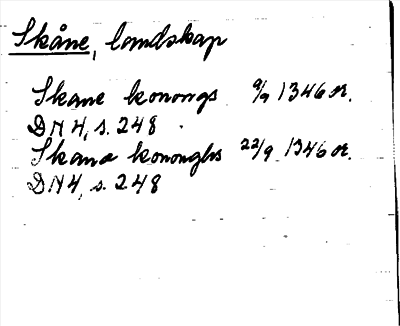 Skåne, landskap
Skane konongs 9/9 1346 or.
DN 4, s. 248
Skana kononghs 22/9 1346 or.
DN 4, s. 248